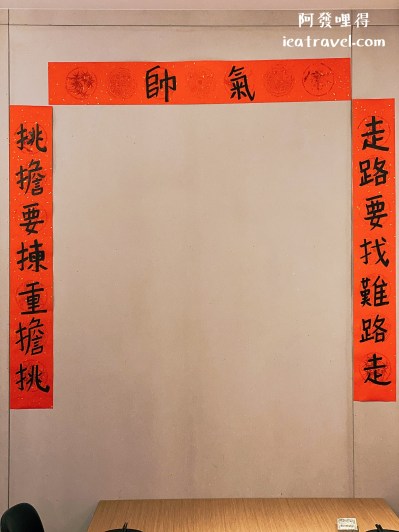 阿發哩得
icatravel.com
帥氣
走路要找難路走
挑擔要揀重擔挑